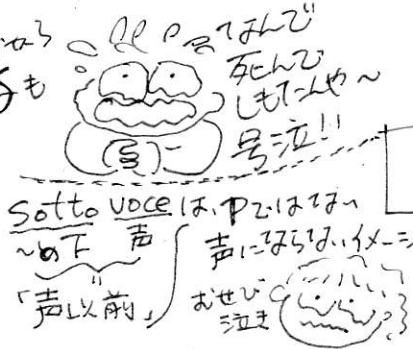 も
なんで
死んで
しもたんや～
号泣!!
sotto voce は、Pではない
～の下 声
声にならないイメージ
「声以前」
むせび
泣き